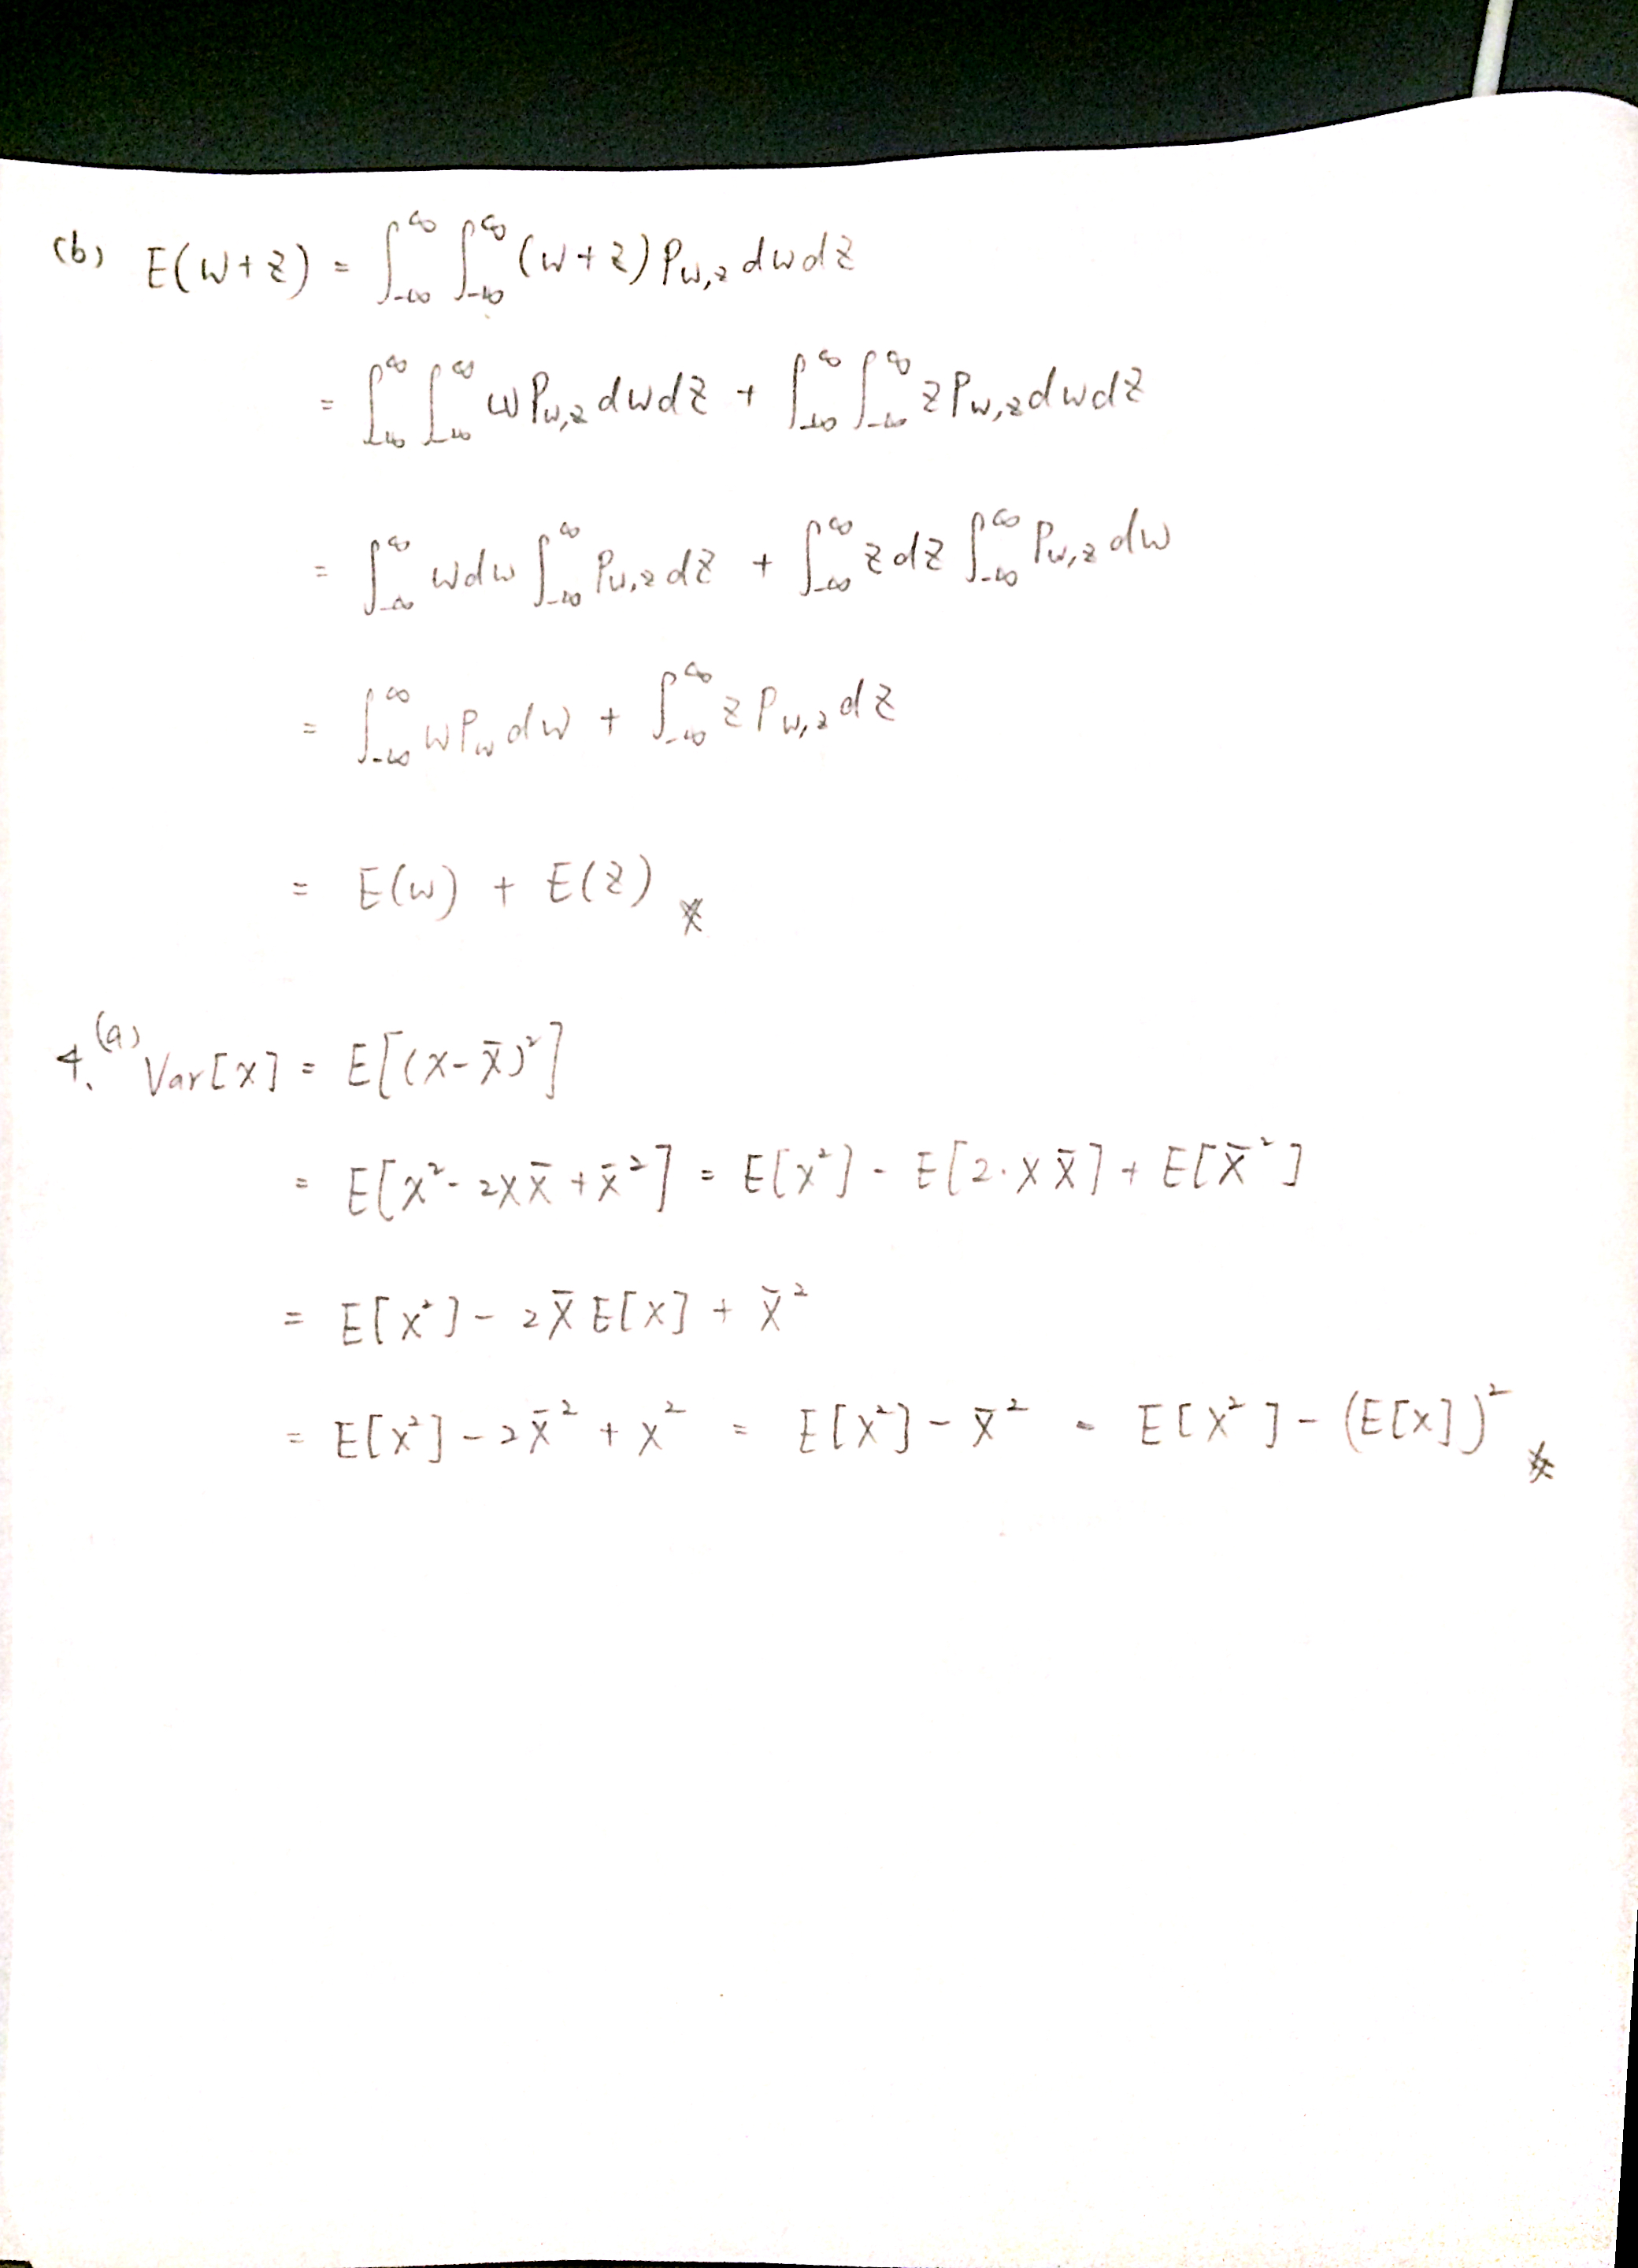 (b) E(W+z) = ∫_{-∞}^{∞} ∫_{-∞}^{∞} (w+z) P_{w,z} dw dz
= ∫_{-∞}^{∞} ∫_{-∞}^{∞} w P_{w,z} dw dz + ∫_{-∞}^{∞} ∫_{-∞}^{∞} z P_{w,z} dw dz
= ∫_{-∞}^{∞} w dw ∫_{-∞}^{∞} P_{w,z} dz + ∫_{-∞}^{∞} z dz ∫_{-∞}^{∞} P_{w,z} dw
= ∫_{-∞}^{∞} w P_w dw + ∫_{-∞}^{∞} z P_{w,z} dz
= E(w) + E(z) ※
4. (a) Var[x] = E[(x-x̄)²]
= E[x² - 2xx̄ + x̄²] = E[x²] - E[2·xx̄] + E[x̄²]
= E[x²] - 2x̄ E[x] + x̄²
= E[x²] - 2x̄² + x² = E[x²] - x̄² = E[x²] - (E[x])² ※